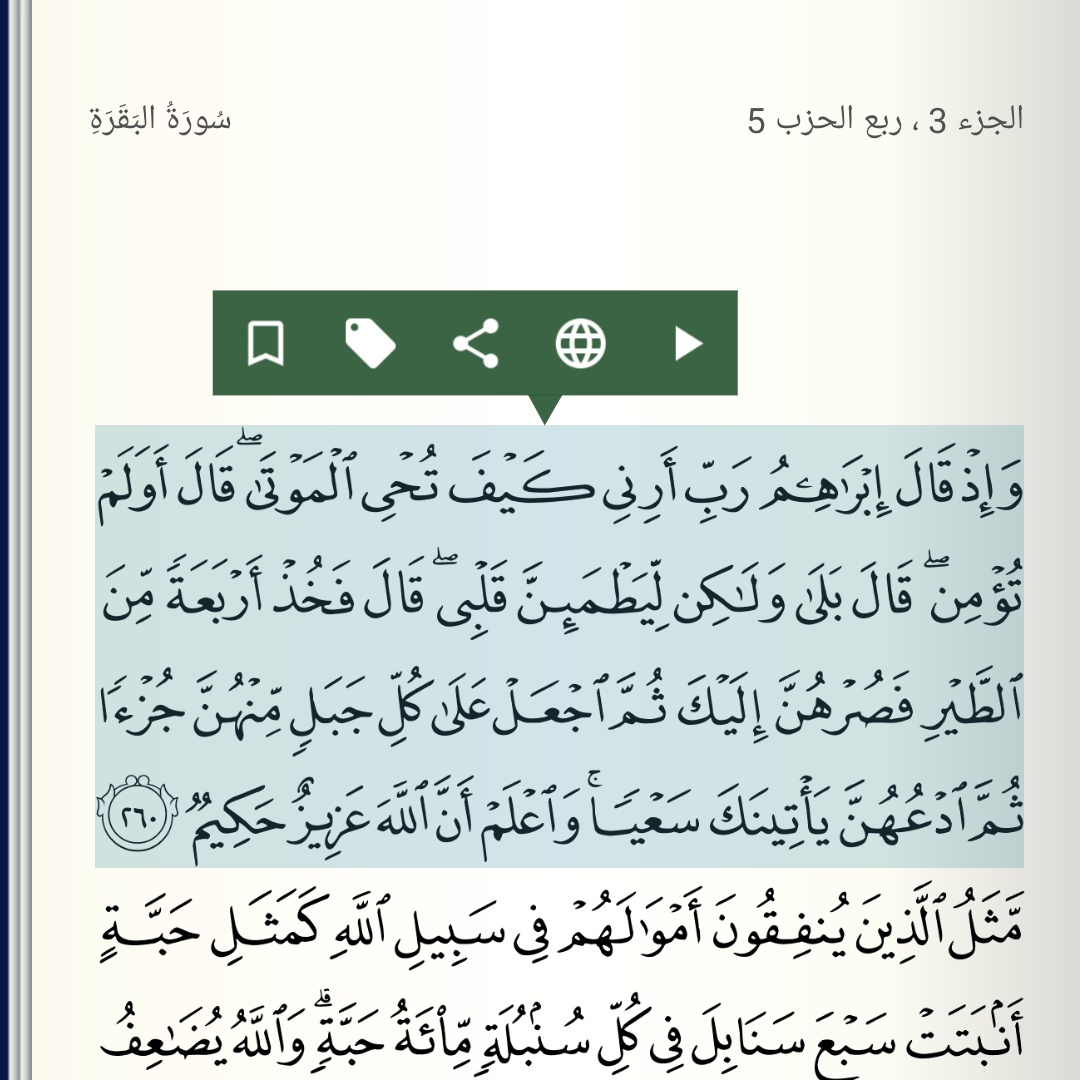 الجزء 3 ، ربع الحزب 5
سُورَةُ البَقَرَةِ
وَإِذۡ قَالَ إِبۡرَٰهِـۧمُ رَبِّ أَرِنِي كَيۡفَ تُحۡيِ ٱلۡمَوۡتَىٰۖ قَالَ أَوَلَمۡ
تُؤۡمِنۖ قَالَ بَلَىٰ وَلَٰكِن لِّيَطۡمَئِنَّ قَلۡبِيۖ قَالَ فَخُذۡ أَرۡبَعَةٗ مِّنَ
ٱلطَّيۡرِ فَصُرۡهُنَّ إِلَيۡكَ ثُمَّ ٱجۡعَلۡ عَلَىٰ كُلِّ جَبَلٖ مِّنۡهُنَّ جُزۡءٗا
ثُمَّ ٱدۡعُهُنَّ يَأۡتِينَكَ سَعۡيٗاۚ وَٱعۡلَمۡ أَنَّ ٱللَّهَ عَزِيزٌ حَكِيمٞ ٢٦٠
مَّثَلُ ٱلَّذِينَ يُنفِقُونَ أَمۡوَٰلَهُمۡ فِي سَبِيلِ ٱللَّهِ كَمَثَلِ حَبَّةٍ
أَنۢبَتَتۡ سَبۡعَ سَنَابِلَ فِي كُلِّ سُنۢبُلَةٖ مِّاْئَةُ حَبَّةٖۗ وَٱللَّهُ يُضَٰعِفُ